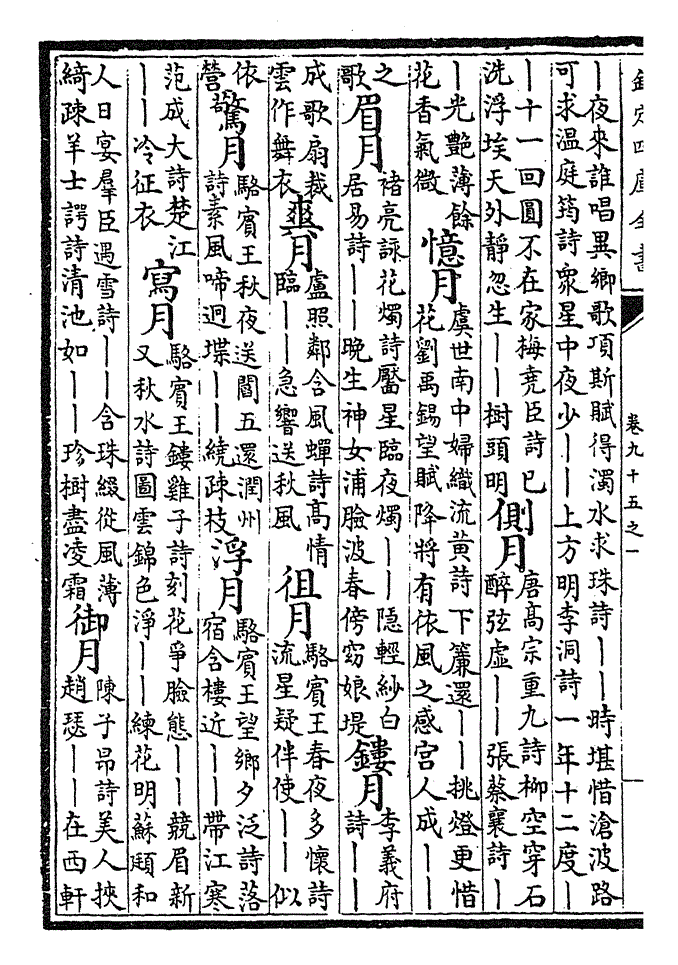 欽定四庫全書
卷九十五之一
｜夜來誰唱異鄉歌項斯賦得濁水求珠詩｜｜時堪惜滄波路
可求溫庭筠詩衆星中夜少｜｜上方明李洞詩一年十二度｜
｜十一回圓不在家梅堯臣詩巳
洗浮埃天外靜忽生｜｜樹頭明
側月
唐高宗重九詩柳空穿石
醉弦虛｜｜張蔡襄詩｜
｜光艷薄餘
花香氣微
憶月
虞世南中婦織流黄詩下簾還｜｜挑燈更惜
花劉禹錫望賦降將有依風之感宮人成｜｜
之
歌
眉月
禇亮詠花燭詩靨星臨夜燭｜｜隱輕紗白
居易詩｜｜晚生神女浦臉波春傍窈娘堤
鏤月
李義府
詩｜｜
成歌扇裁
雲作舞衣
爽月
盧照鄰含風蟬詩高情
臨｜｜急響送秋風
徂月
駱賓王春夜多懷詩
流星疑伴使｜｜似
依
營
驚月
駱賓王秋夜送閻五還潤州
詩素風啼迥堞｜｜繞疎枝
浮月
駱賓王望鄉夕泛詩落
宿含樓近｜｜帶江寒
范成大詩楚江
｜｜冷征衣
寫月
駱賓王鏤雞子詩刻花爭臉態｜｜競眉新
又秋水詩圖雲錦色淨｜｜練花明蘇頲和
人日宴羣臣遇雪詩｜｜含珠綴從風薄
綺疎羊士諤詩清池如｜｜珍樹盡凌霜
御月
陳子昂詩美人挾
趙瑟｜｜在西軒